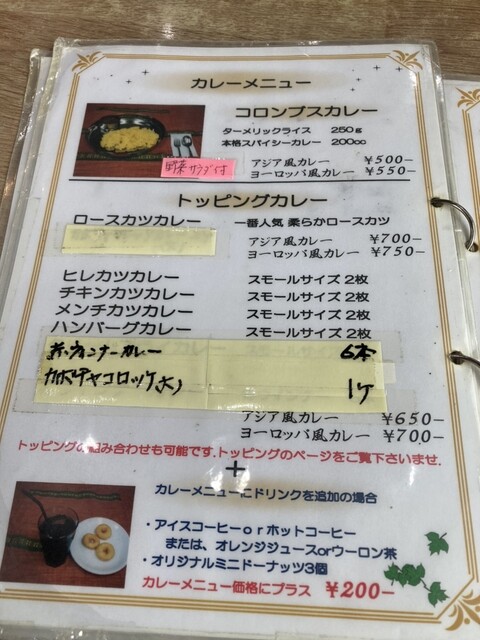 カレーメニュー
コロンブスカレー
ターメリックライス 250g
本格スパイシーカレー 200cc
野菜サラダ付
アジア風カレー ¥500-
ヨーロッパ風カレー ¥550-
トッピングカレー
ロースカツカレー 一番人気 柔らかロースカツ
アジア風カレー ¥700-
ヨーロッパ風カレー ¥750-
ヒレカツカレー スモールサイズ2枚
チキンカツカレー スモールサイズ2枚
メンチカツカレー スモールサイズ2枚
ハンバーグカレー スモールサイズ2枚
赤ウィンナーカレー 6本
カボチャコロッケ(大) 1ケ
アジア風カレー ¥650-
ヨーロッパ風カレー ¥700-
トッピングの組み合わせも可能です.トッピングのページをご覧下さいませ.
+
カレーメニューにドリンクを追加の場合
・アイスコーヒーorホットコーヒー
または、オレンジジュースorウーロン茶
・オリジナルミニドーナッツ3個
カレーメニュー価格にプラス ¥200-